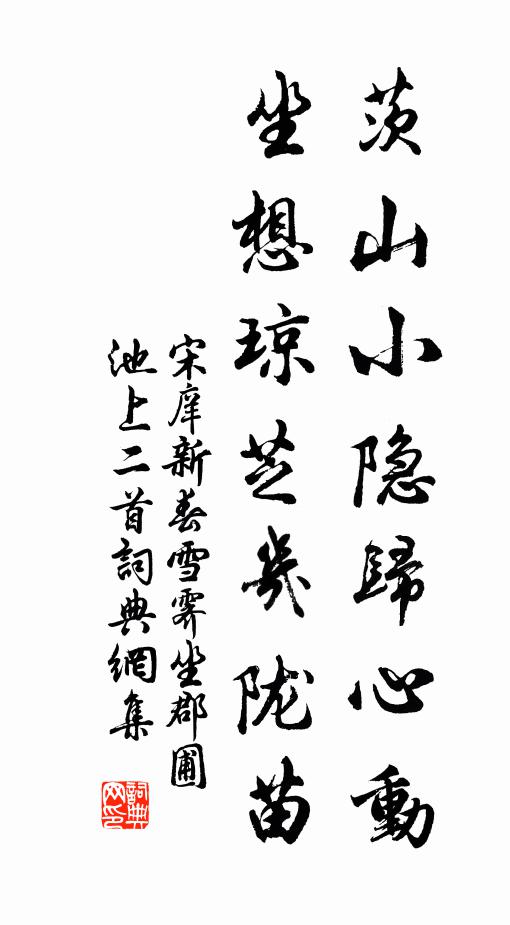 茨山小隐歸心動
坐想琼芝幾陇苗
宋庠新春雪霽坐郡圃
池上二首詞典網集
詞典网印